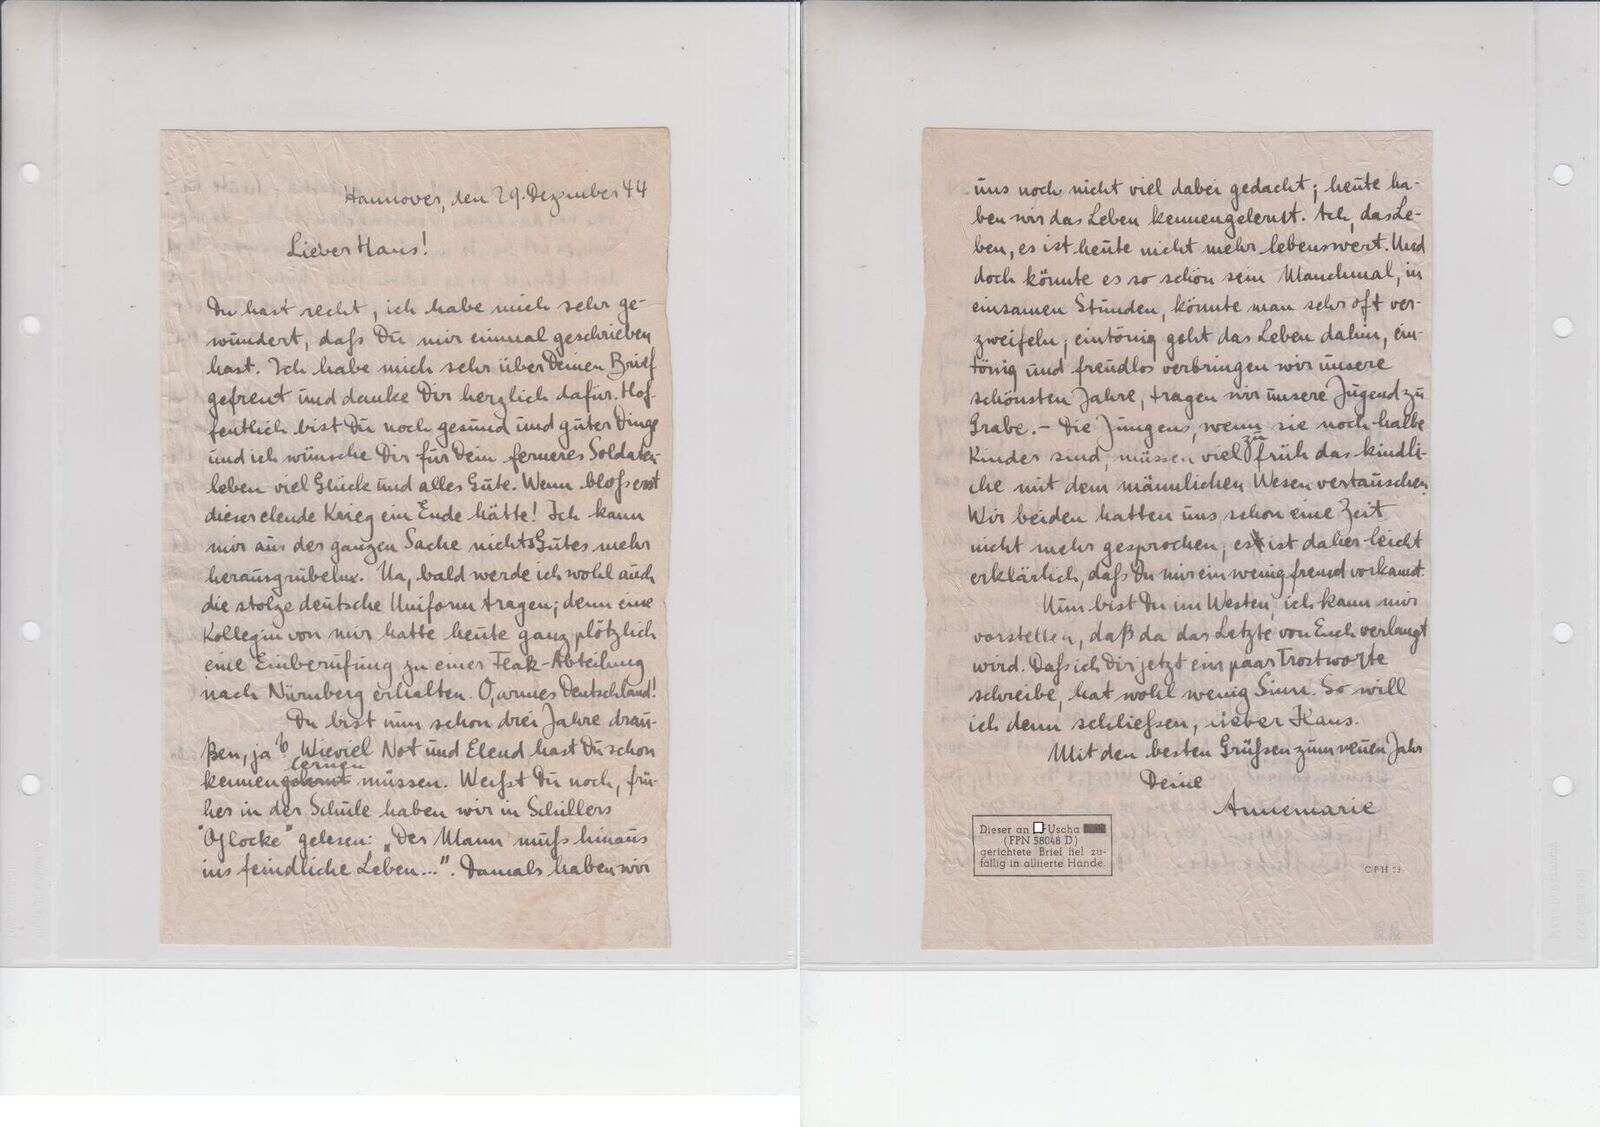 Hannover, den 29. Dezember 44
Lieber Hans!
Du hast recht, ich habe mich sehr ge-
wundert, daſs Du mir einmal geschrieben
hast. Ich habe mich sehr über Deinen Brief
gefreut und danke Dir herzlich dafür. Hof-
fentlich bist Du noch gesund und guter Dinge
und ich wünsche Dir für Dein ferneres Soldaten-
leben viel Glück und alles Gute. Wenn bloſs erst
dieser elende Krieg ein Ende hätte! Ich kann
mir aus der ganzen Sache nichts Gutes mehr
herausgrübeln. Na, bald werde ich wohl auch
die stolze deutsche Uniform tragen; denn eine
Kollegin von mir hatte heute ganz plötzlich
eine Einberufung zu einer Flak-Abteilung
nach Nürnberg erhalten. O, armes Deutschland!
Du bist nun schon drei Jahre drau-
ßen, ja? Wieviel Not und Elend hast Du schon
kennen gelernt lernen müssen. Weiſst Du noch, frü-
her in der Schule haben wir in Schillers
"Glocke" gelesen: „Der Mann muſs hinaus
ins feindliche Leben...". Damals haben wir
uns noch nicht viel dabei gedacht; heute ha-
ben wir das Leben kennengelernt. Ach, das Le-
ben, es ist heute nicht mehr lebenswert. Und
doch könnte es so schön sein. Manchmal, in
einsamen Stunden, könnte man sehr oft ver-
zweifeln; eintönig geht das Leben dahin, ein-
tönig und freudlos verbringen wir unsere
schönsten Jahre, tragen wir unsere Jugend zu
Grabe. – Die Jungens, wenn sie noch halbe
Kinder sind, müssen viel zu früh das kindli-
che mit dem männlichen Wesen vertauschen.
Wir beiden hatten uns schon eine Zeit
nicht mehr gesprochen; es ist daher leicht
erklärlich, daſs Du mir ein wenig fremd vorkamst.
Nun bist Du im Westen, ich kann mir
vorstellen, daß da das Letzte von Euch verlangt
wird. Daſs ich Dir jetzt ein paar Trostworte
schreibe, hat wohl wenig Sinn. So will
ich denn schlieſsen, lieber Hans.
Mit den besten Grüſsen zum neuen Jahr
Deine
Annemarie
Dieser an Uscha
(FPN 58048 D)
gerichtete Brief fiel zu-
fällig in alliierte Hände.
CPH 23